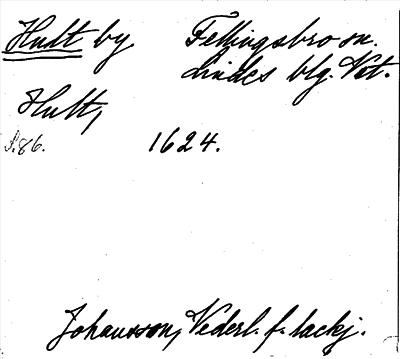 Hult by Fellingsbro sn.
Lindes blg. Vst.
Hult,
S.86. 1624.
Johansson, Vederl. f. lackj.